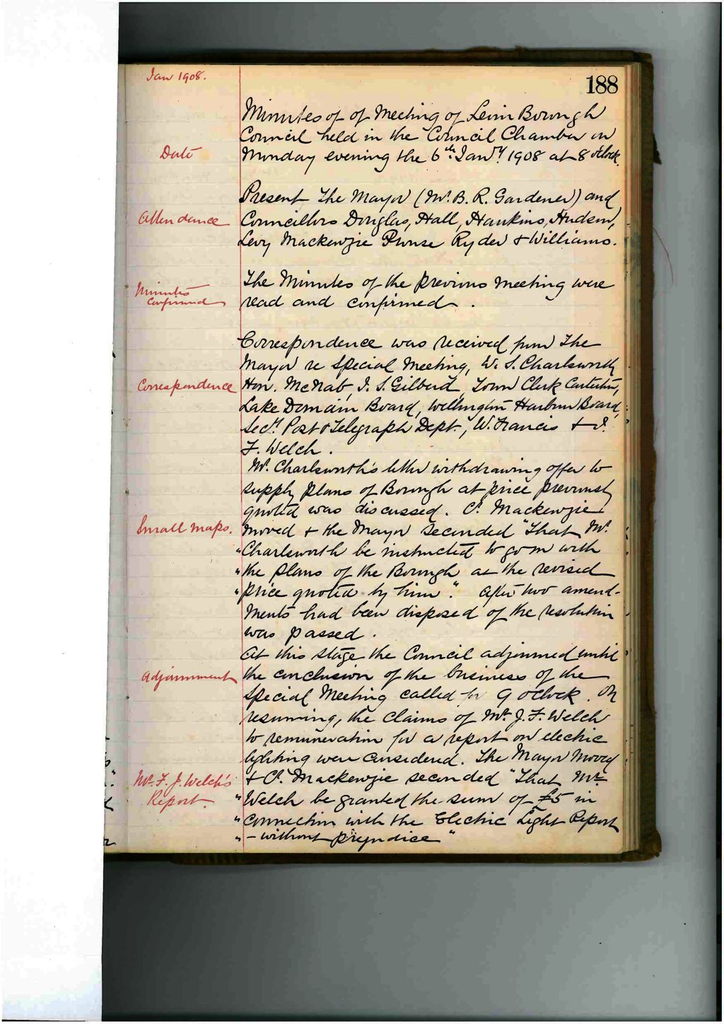 Jan 1908.
188
Minutes of of Meeting of Levin Borough
Council held in the Council Chamber on
Date
Monday evening the 6th Jany 1908 at 8 oclock.
Present The Mayor (Mr. B. R. Gardener) and
Attendance
Councillors Douglas, Hall, Hankins, Hudson,
Levy Mackenzie Prouse Ryder & Williams.
Minutes
confirmed
The Minutes of the previous meeting were
read and confirmed.
Correspondence was received from The
Mayor re Special Meeting, W. S. Charlesworth
Correspondence
Hon. McNab, J. S. Gilbert Town Clerk Carterton,
Lake Domain Board, Wellington Harbour Board,
Secy. Post & Telegraph Dept., W. Francis &
F. Welch.
Mr. Charlesworth's letter withdrawing offer to
supply plans of Borough at price previously
quoted was discussed. Cr. Mackenzie
Small maps.
moved & the Mayor seconded "That Mr.
"Charlesworth be instructed to go on with
"the plans of the Borough at the revised
"price quoted by him". After two amend-
ments had been disposed of the resolution
was passed.
At this stage the Council adjourned until
Adjournment
the conclusion of the business of the
Special Meeting called for 9 oclock. On
resuming, the claims of Mr J. F. Welch
to remuneration for a report on electric
lighting were considered. The Mayor moved
Mr. F. J. Welch's
Report.
& Cr. Mackenzie seconded "That Mr.
"Welch be granted the sum of £5 in
"connection with the Electric Light Report
"- without prejudice"